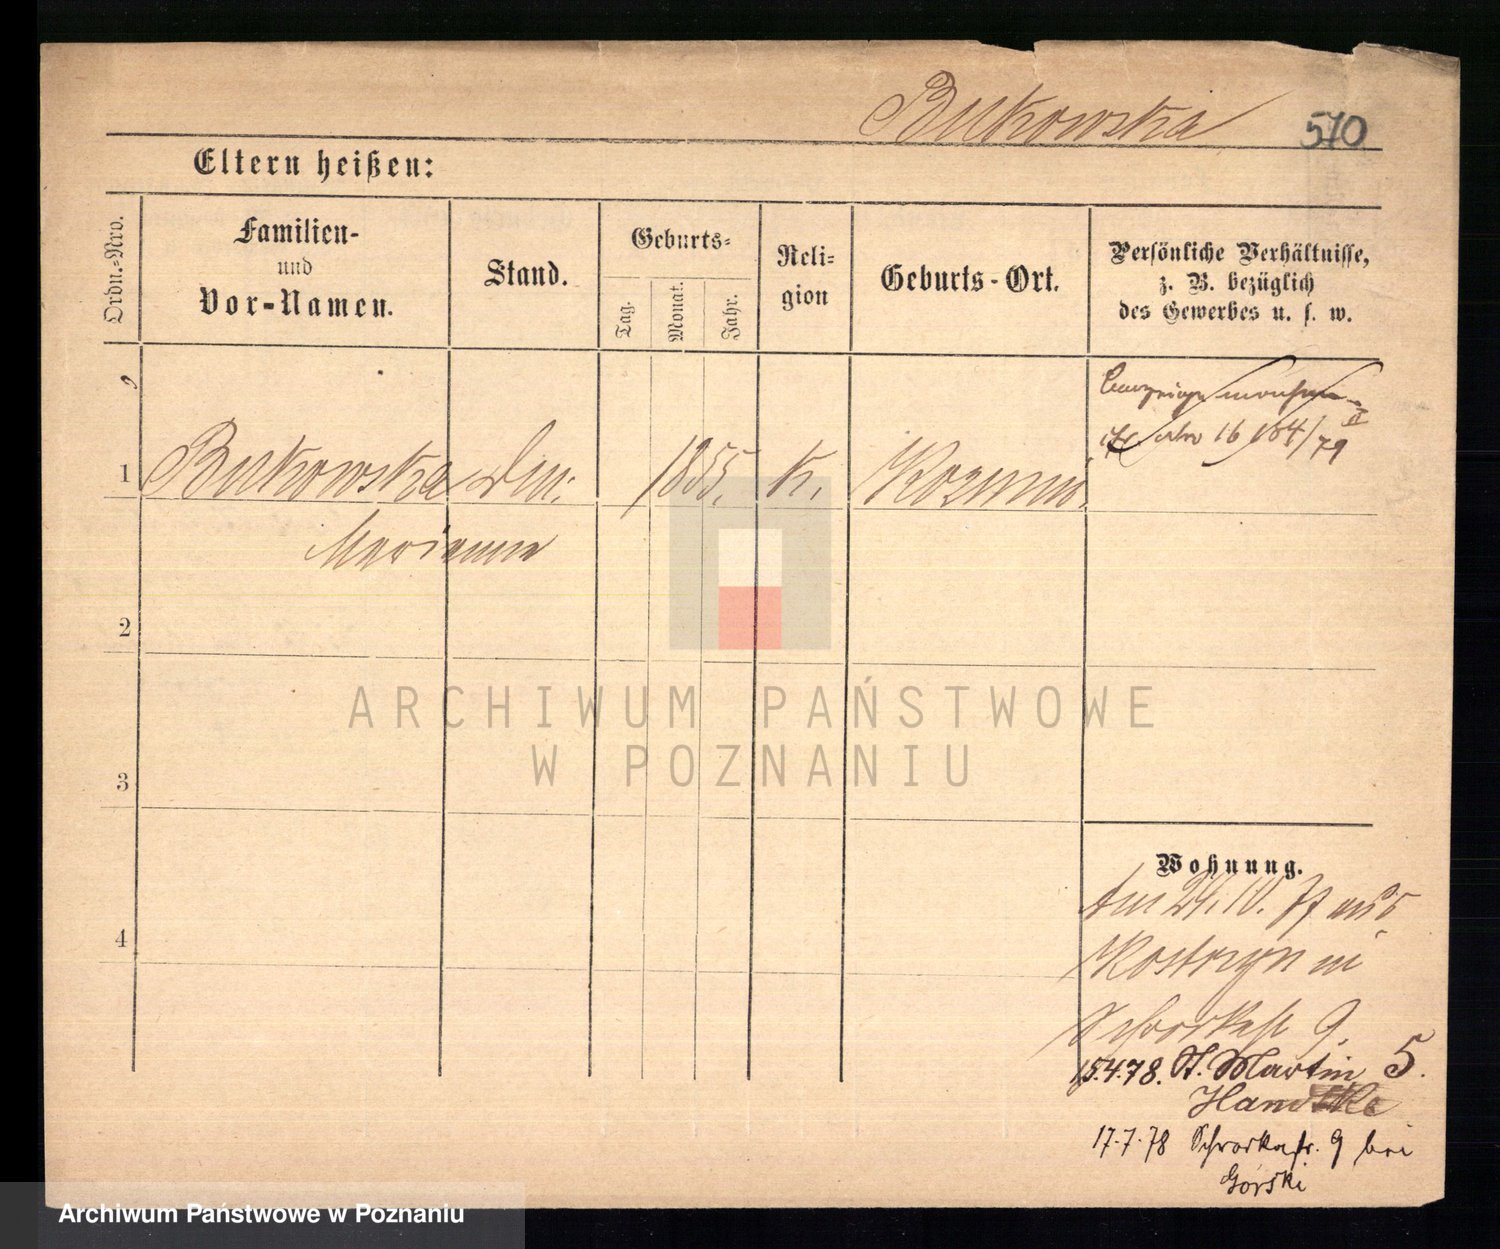 Bukowska 510
Eltern heißen:
Ordn.-Nro.
Familien-
und
Vor-Namen.
Stand.
Geburts-
Tag.
Monat.
Jahr.
Reli-
gion
Geburts-Ort.
Persönliche Verhältnisse,
z. B. bezüglich
des Gewerbes u. s. w.
16 184/79
1 Bukowska 1855. K. Kozmin
Marianna
2
3
4
Wohnung.
Am 24.10.77 aus
Kostrzyn in
Schrodkastr 9.
15.4.78. St. Martin 5.
17.7.78 Schrodkastr. 9 bei
Górski
ARCHIWUM PAŃSTWOWE
W POZNANIU
Archiwum Państwowe w Poznaniu